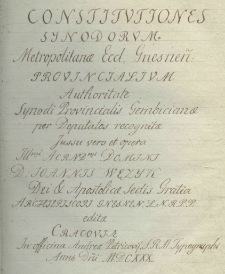 CONSTITVTIONES
SYNODORVM
Metropolitanæ Eccl. Gnesneñ
PROVINCIALIVM
Authoritate
Synodi Provincialis Gembicianæ
per Deputatos recognitæ
Jussu vero et opera
DOMINI
D. IOANNIS WĘZYK
Dei & Apostolicæ Sedis Gratia
ARCHIEPISCOPI GNESNEN. L. N. R. P. P.
editæ
CRACOVIÆ
In officina Andreæ Petricovij S. R. M. Typographi
Anno Dñi MDCXXX.